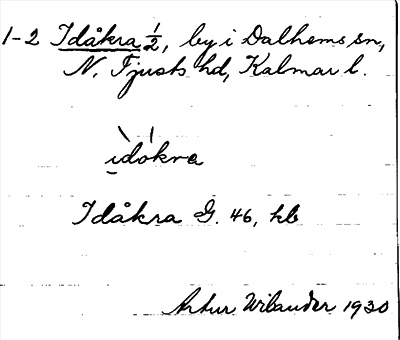 1-2 Idåkra ½, by i Dalhems sn,
N. Tjusts hd, Kalmar l.
ìdókra
Idåkra G. 46, kb
Artur Wilander 1930